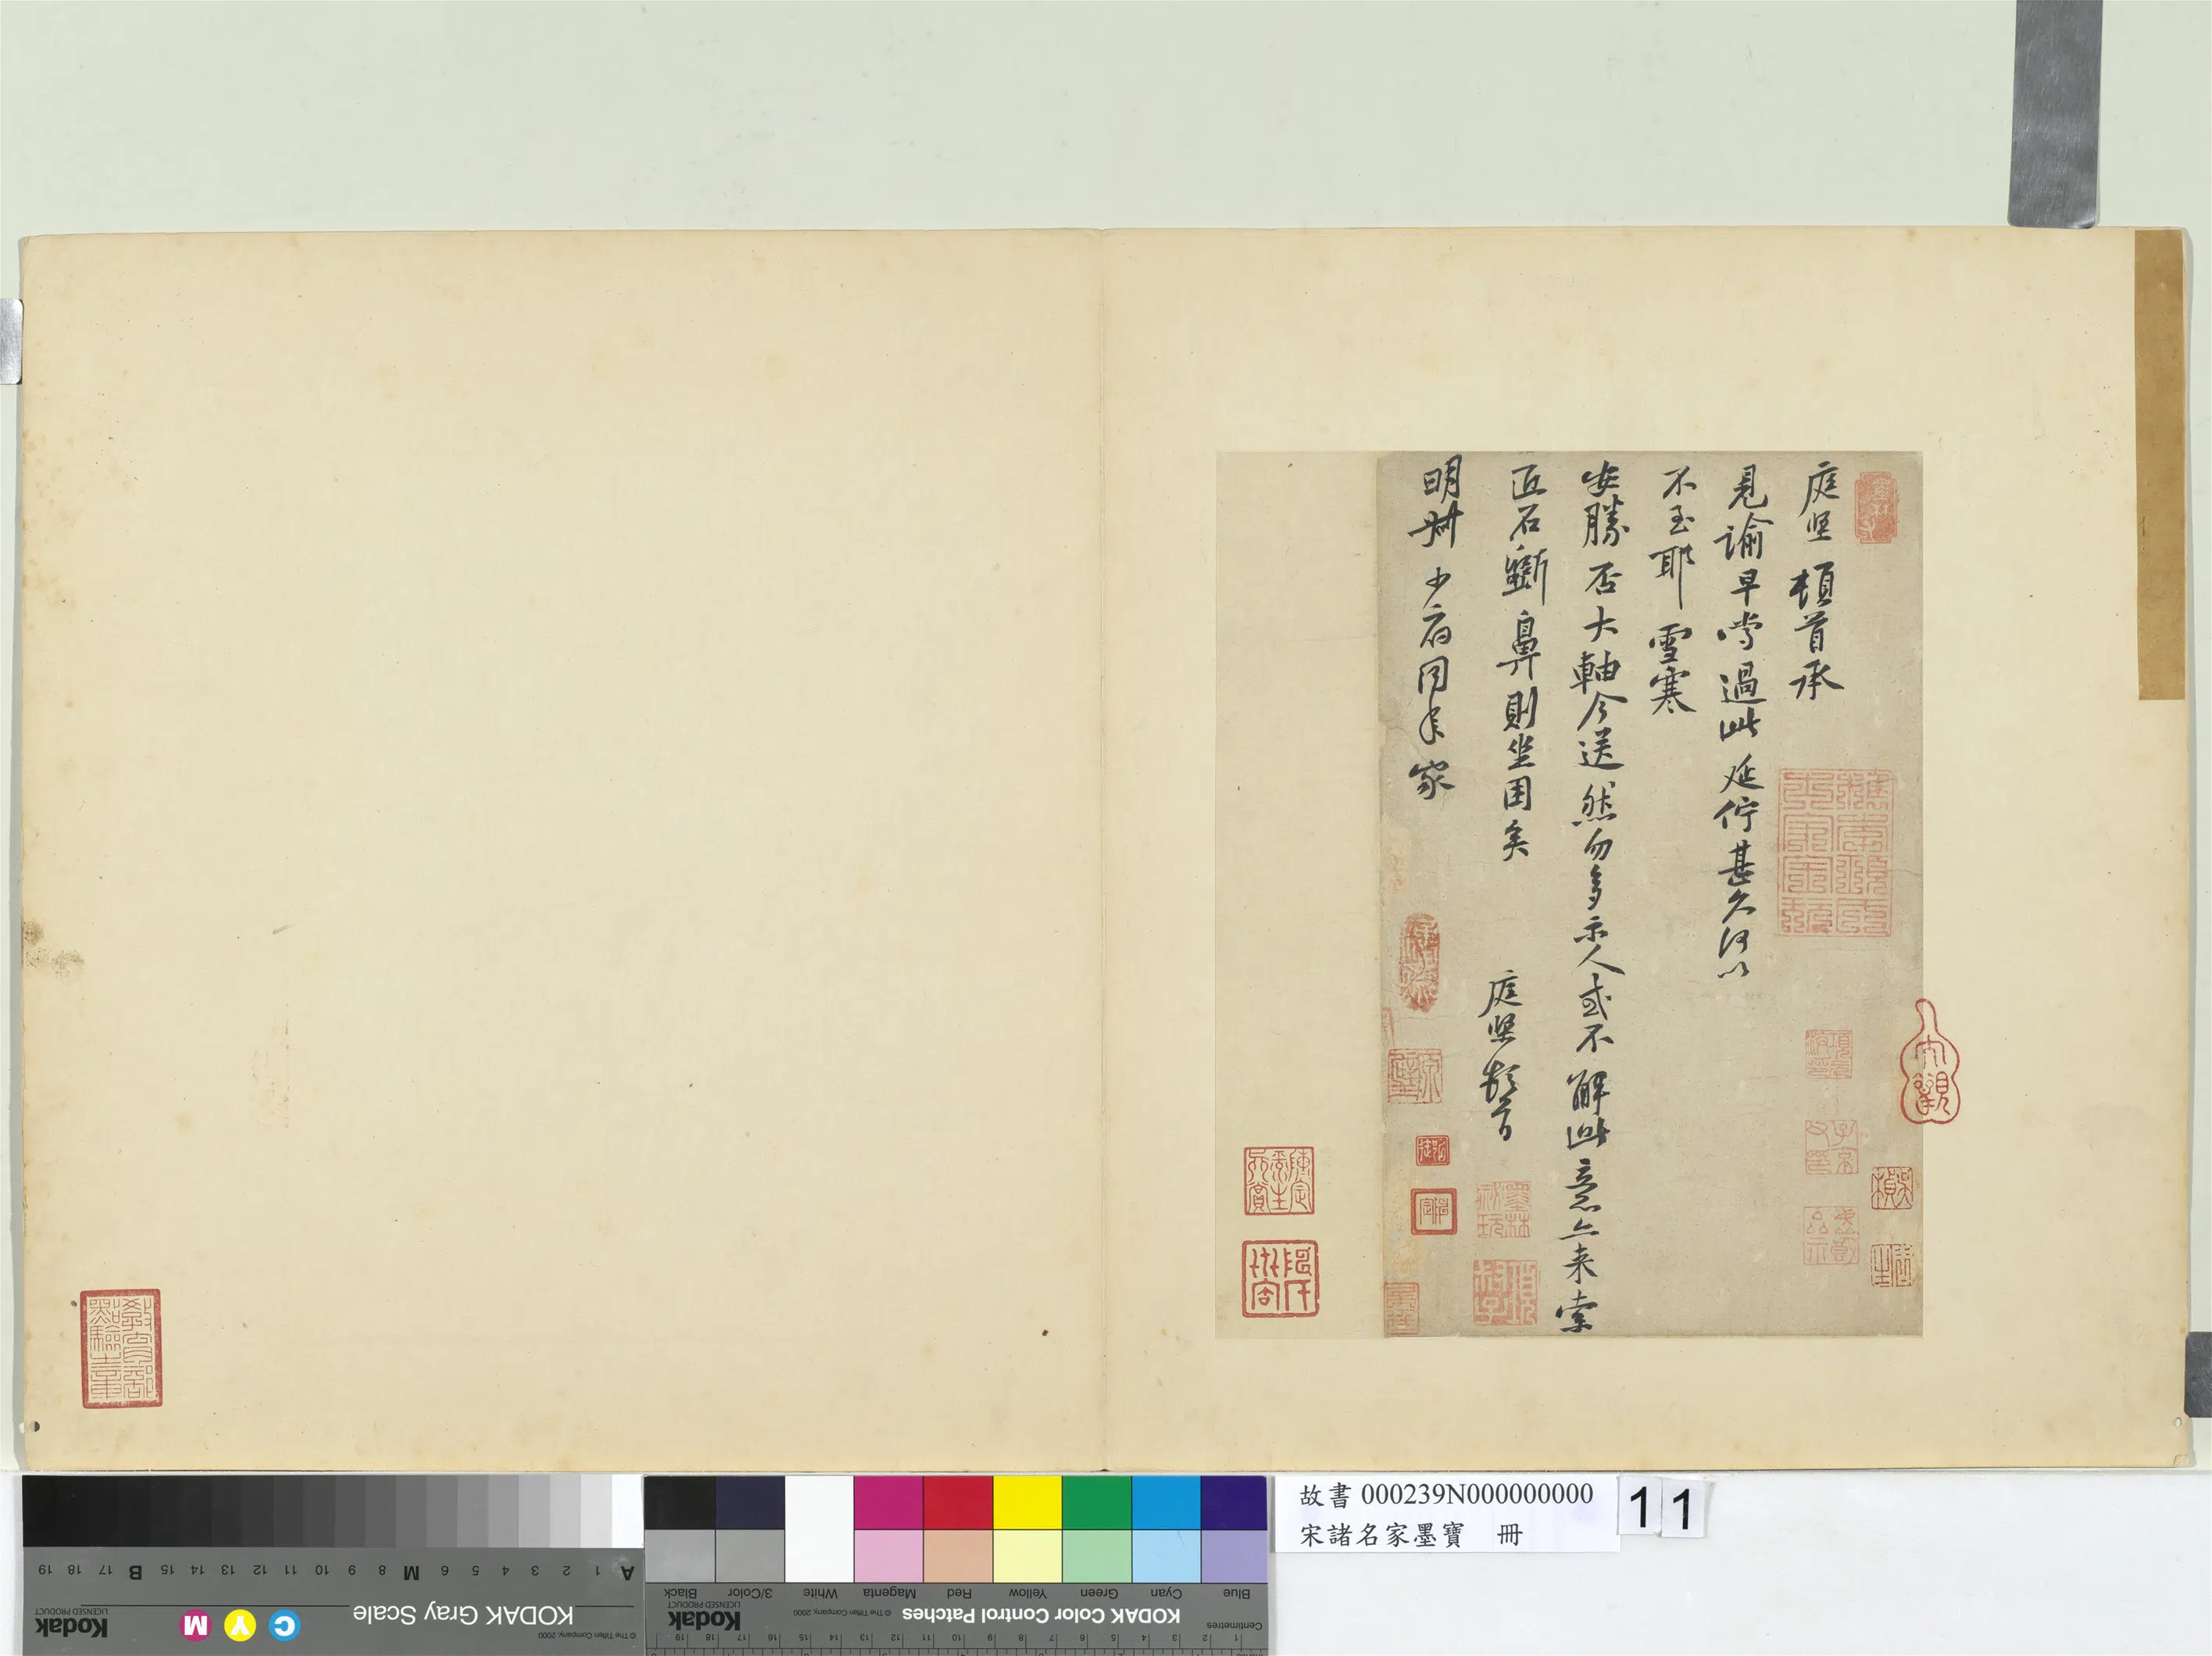 庭堅頓首承
見諭早嘗過此延佇甚久何以
不至耶雪寒
安勝否大軸今送然勿多示人或不解此意亦来索
匠石斵鼻則坐困矣
庭堅頓首
明州少府同年家
內觀
故書 000239N000000000
宋諸名家墨寶 冊
11
KODAK Gray Scale
Kodak
LICENSED PRODUCT
© The Tiffen Company, 2000
C Y M
A 1 2 3 4 5 6 M 8 9 10 11 12 13 14 15 B 17 18 19
KODAK Color Control Patches
Kodak
LICENSED PRODUCT
© The Tiffen Company, 2000
Blue Cyan Green Yellow Red Magenta White 3/Color Black
Centimetres
1 2 3 4 5 6 7 8 9 10 11 12 13 14 15 16 17 18 19